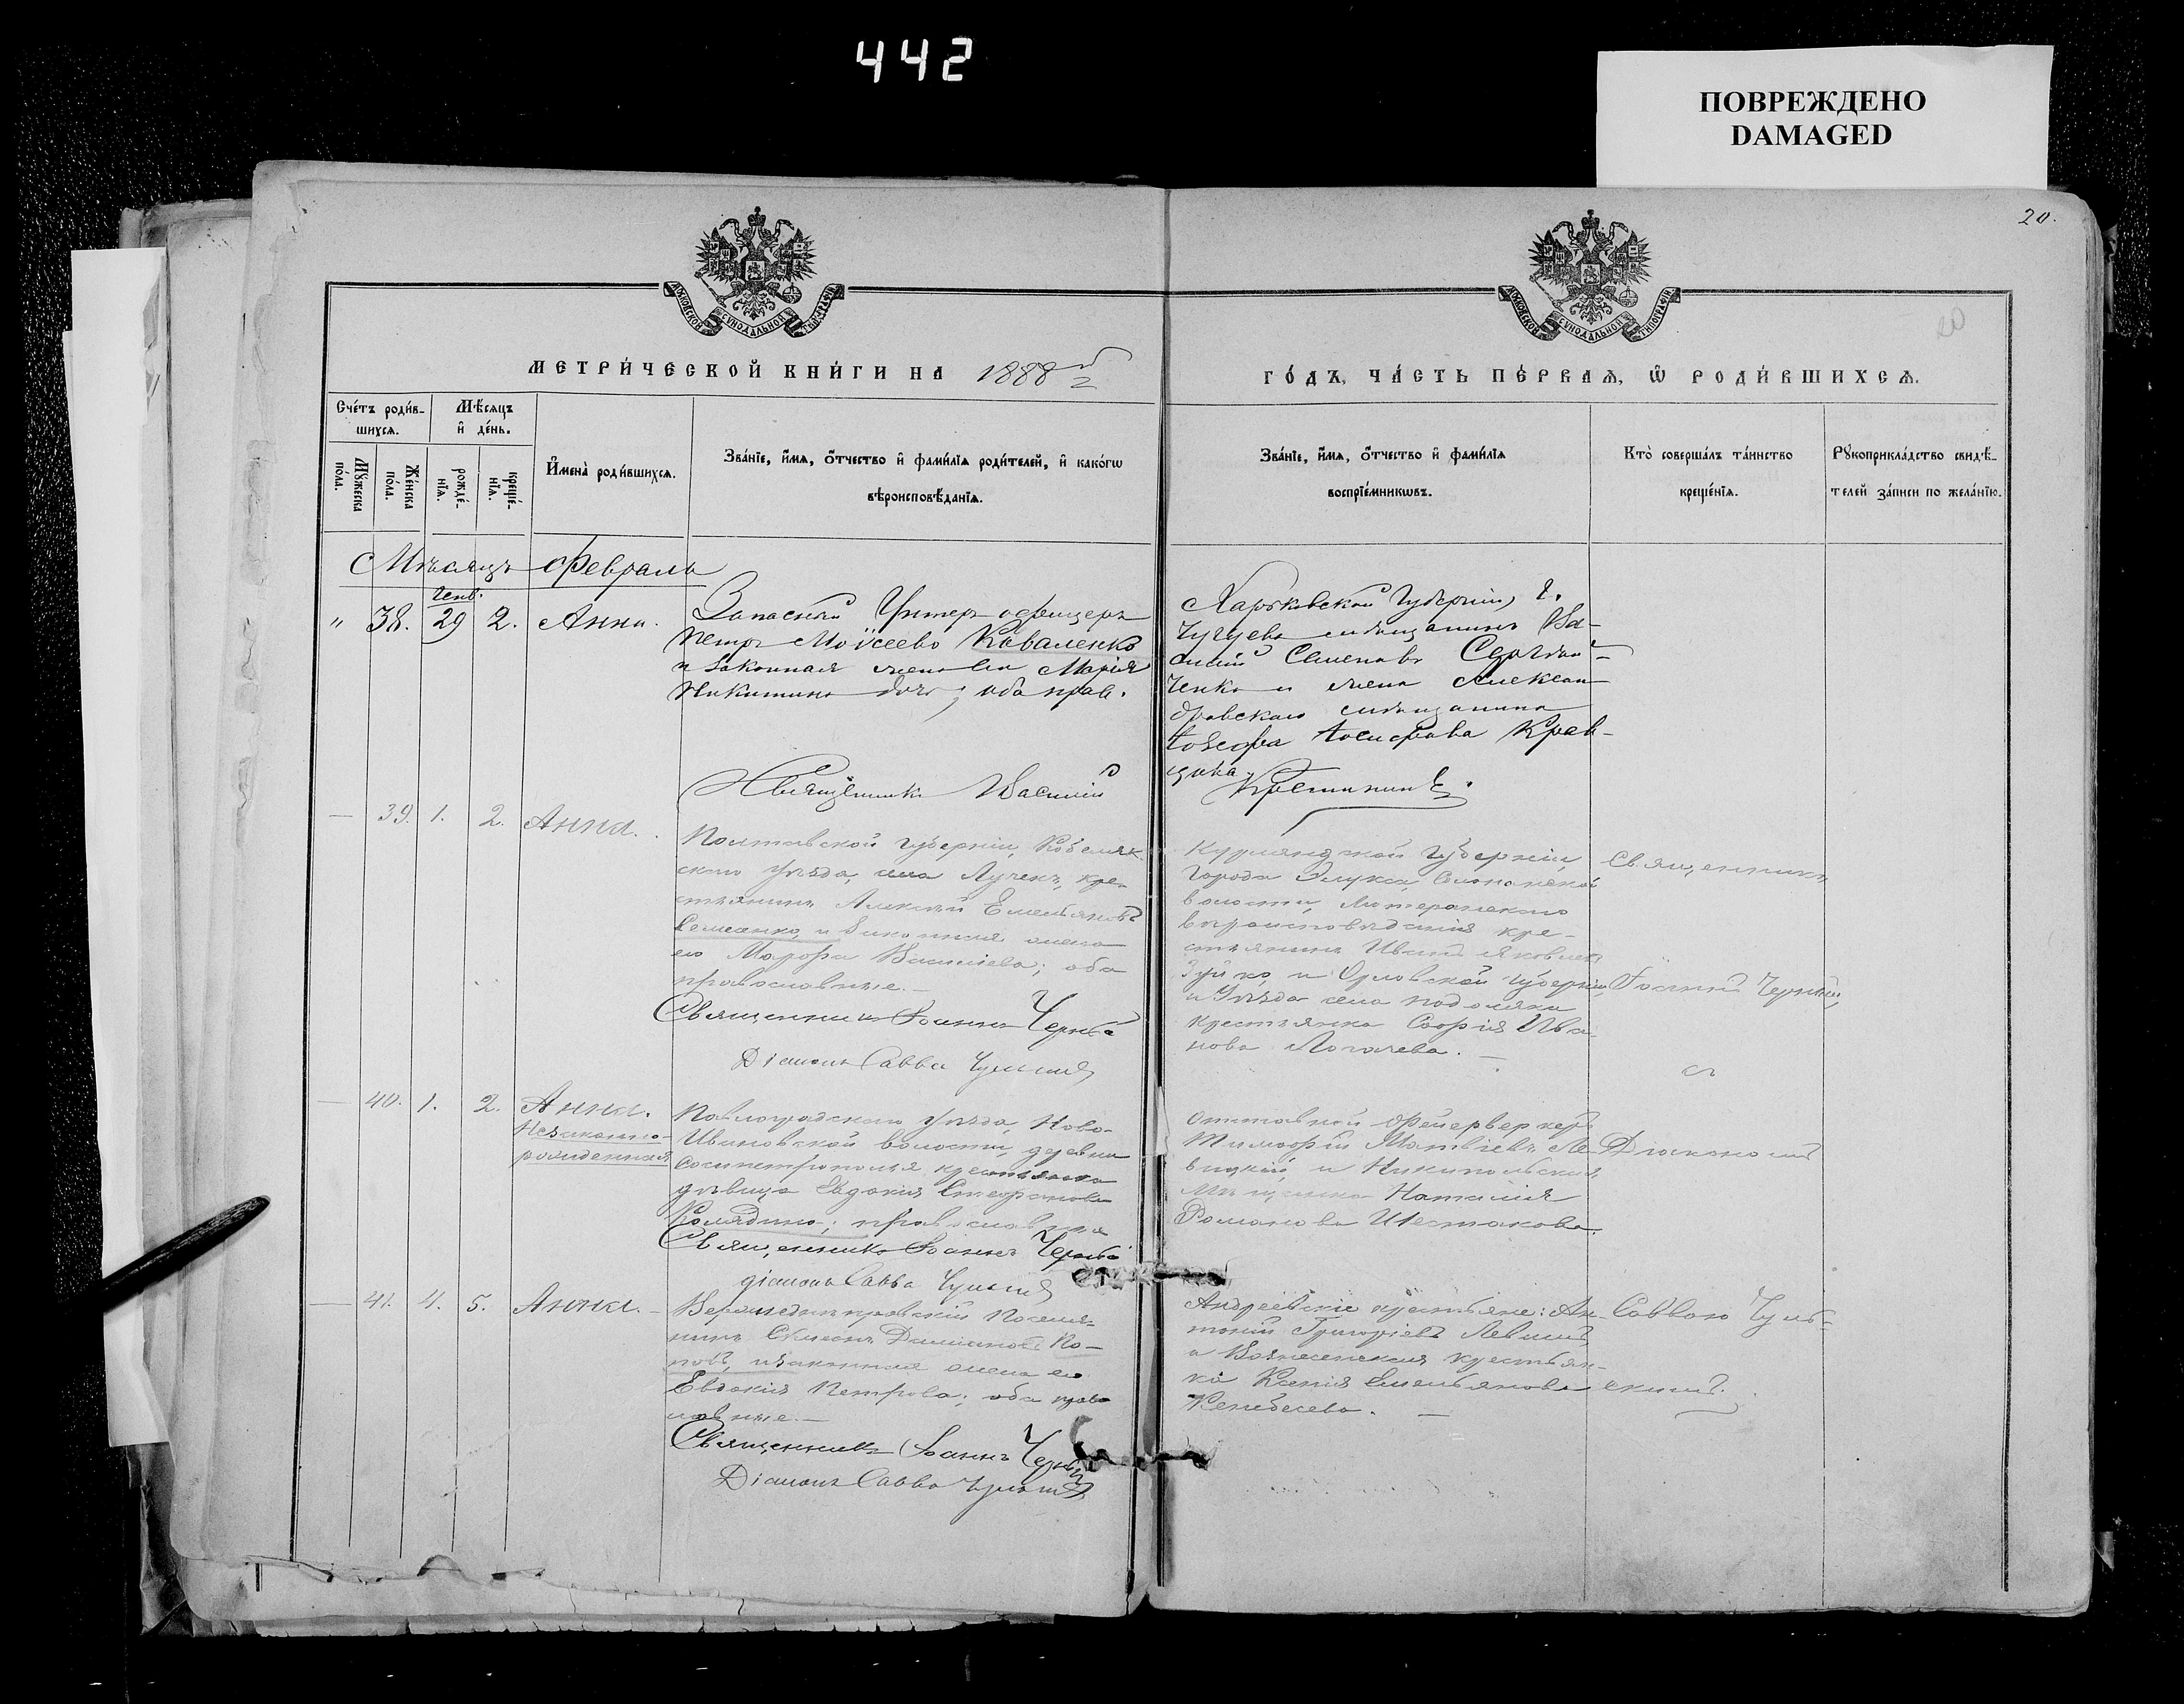 442
ПОВРЕЖДЕНО
DAMAGED
20.
20
МОСКОВСКОЙ СѴНОДАЛЬНОЙ ТИПОГРАФІИ
МОСКОВСКОЙ СѴНОДАЛЬНОЙ ТИПОГРАФІИ
МЕТРИ́ЧЕСКОЙ КНИ́ГИ НА 1888й
ГО́ДЪ, ЧА́СТЬ ПЕ́РВАѦ, Ѡ҆ РОДИ́ВШИХСѦ.
Сче́тъ роди́в-
шихсѧ.
Мѣ́сѧцъ
и҆ де́нь.
Мꙋ́жеска
по́ла.
Же́нска
по́ла.
рожде́-
нїѧ.
креще́-
нїѧ.
И҆мена̀ роди́вшихсѧ.
Зва́нїе, и҆́мѧ, ѻ҆́тчество и҆ фами́лїѧ роди́телей, и҆ како́гѡ
вѣроисповѣ́данїѧ.
Зва́нїе, и҆́мѧ, ѻ҆́тчество и҆ фами́лїѧ
воспрїе́мникѡвъ.
Кто̀ соверша́лъ та́инство
креще́нїѧ.
Рꙋкоприкла́дство свидѣ́-
телей за́писи по жела́нїю.
Мѣсяцъ Февраль
Генв.
" 38. 29 2. Анна.
Запасный Унтер-офицеръ
Петръ Моисеевъ Коваленко
и законная жена его Марія
Никитина дочь; оба прав.
Харьковской Губерніи, г.
Чугуева мѣщанинъ Ва-
силій Семеновъ
ченко и жена Алексан-
дровскаго мѣщанина
Іосифова Крав-
цова.
Священникъ Василій
39. 1. 2. Анна.
Полтавской губерніи, Кобеляк-
скаго уѣзда, села Лучекъ, кре-
стьянинъ Алексѣй Емельяновъ
и законная жена
его Марфа Васильева; оба
православные.
Священникъ Іоаннъ Черный
Діаконъ Савва
Курляндской Губерніи,
города
волости, Лютеранскаго
вѣроисповѣданія кре-
стьянинъ Иванъ Яковлевъ
Зуйко, и Орловской губерніи,
и Уѣзда села Подоляни
крестьянка Софія Ива-
нова Логачева.
Священникъ
Іоаннъ Черный,
съ
40. 1. 2. Анна.
Незаконно-
рожденная
Павлоградскаго уѣзда, Ново-
Ивановской волости, деревни
крестьянка
дѣвица Евдокія Стефанова
Колядина; православная
Священникъ Іоаннъ Черный
діаконъ Савва
Отставной Фейерверкеръ
Тимофѣй Матвѣевъ Ле-
вицкій, и Никипольская
Мѣщанка Наталія
Романова Шестакова.
Діакономъ
41. 4. 5. Анна.
Верхнеднѣпровскій Поселя-
нинъ Симеонъ Даміановъ По-
повъ, и законная жена его
Евдокія Петрова; оба право
славные.
Священникъ Іоаннъ Черный
Діаконъ Савва
Андреевскіе крестьяне: Ан-
тоній Григоріевъ Левшинъ,
и Вознесенская крестьян-
ка Ксенія Емельянова
Саввою Чуль-
скимъ.